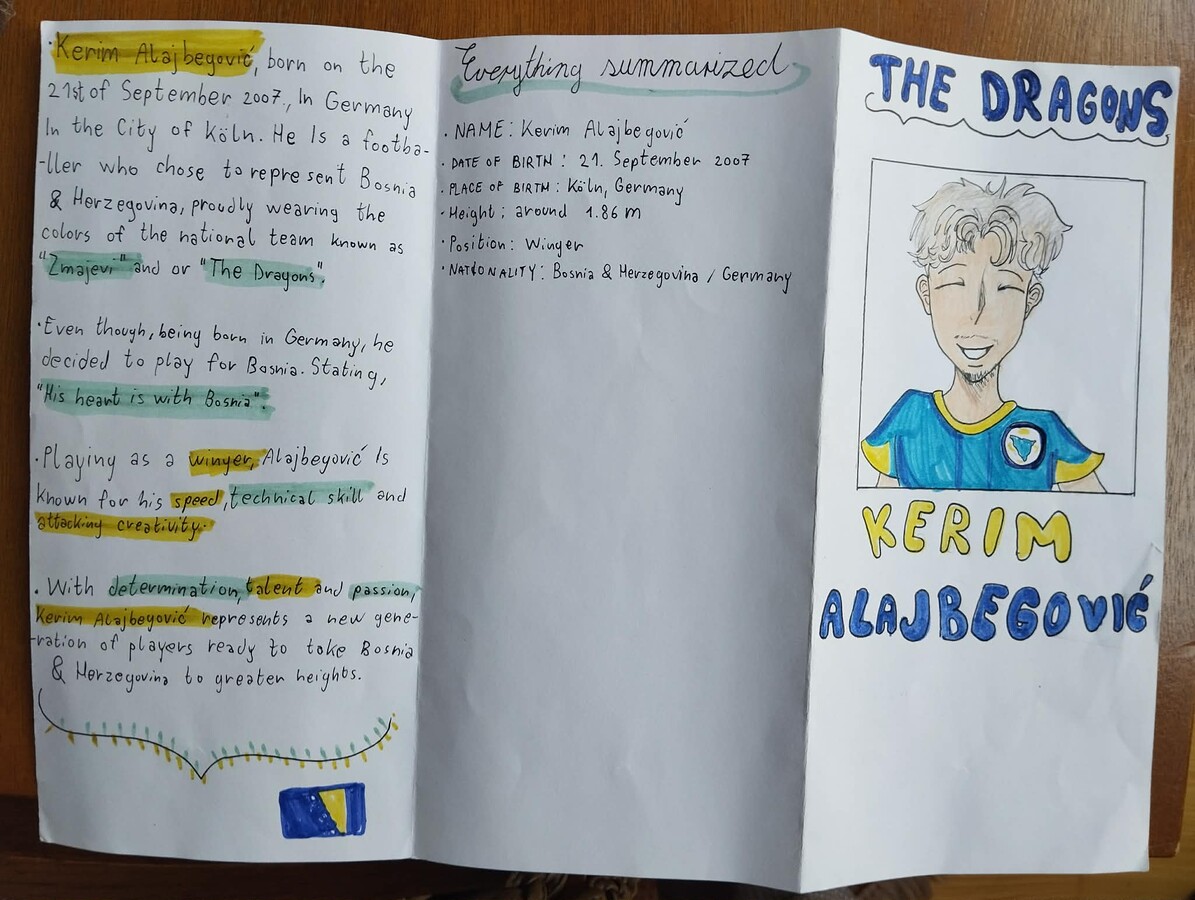 ·Kerim Alajbegović, born on the
21st of September 2007., In Germany
In the City of Köln. He Is a footba-
-ller who chose to represent Bosnia
& Herzegovina, proudly wearing the
colors of the national team known as
"Zmajevi" and or "The Dragons".
·Even though, being born in Germany, he
decided to play for Bosnia. Stating,
"His heart is with Bosnia".
·Playing as a winger, Alajbegović Is
known for his speed, technical skill and
attacking creativity.
·With determination, talent and passion,
Kerim Alajbegović represents a new gene-
-ration of players ready to take Bosnia
& Herzegovina to greater heights.
Everything summarized
·NAME: Kerim Alajbegović
·DATE OF BIRTH: 21. September 2007
·PLACE OF BIRTH: Köln, Germany
·Height: around 1.86 m
·Position: Winger
·NATIONALITY: Bosnia & Herzegovina / Germany
THE DRAGONS
KERIM
ALAJBEGOVIĆ